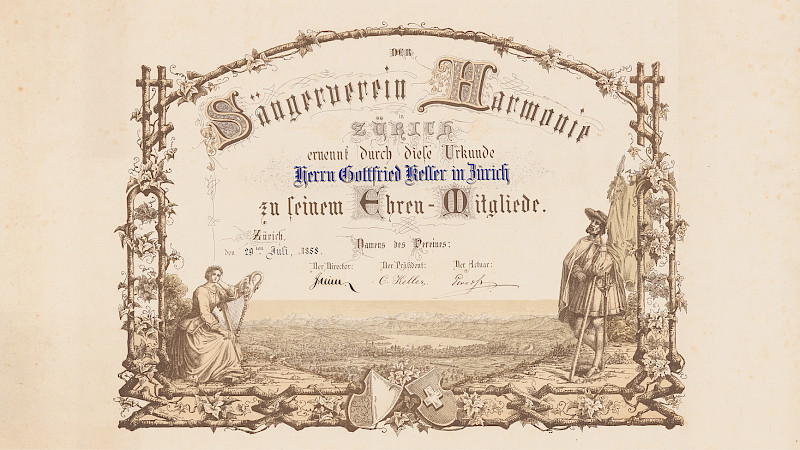 DER
Sängerverein Harmonie
in
ZÜRICH
ernennt durch diese Urkunde
Herrn Gottfried Keller in Zürich
zu seinem Ehren-Mitgliede.
Zürich,
den 29ten Juli, 1888.
Namens des Vereines:
Der Director: Der Präsident: Der Actuar:
C. Keller